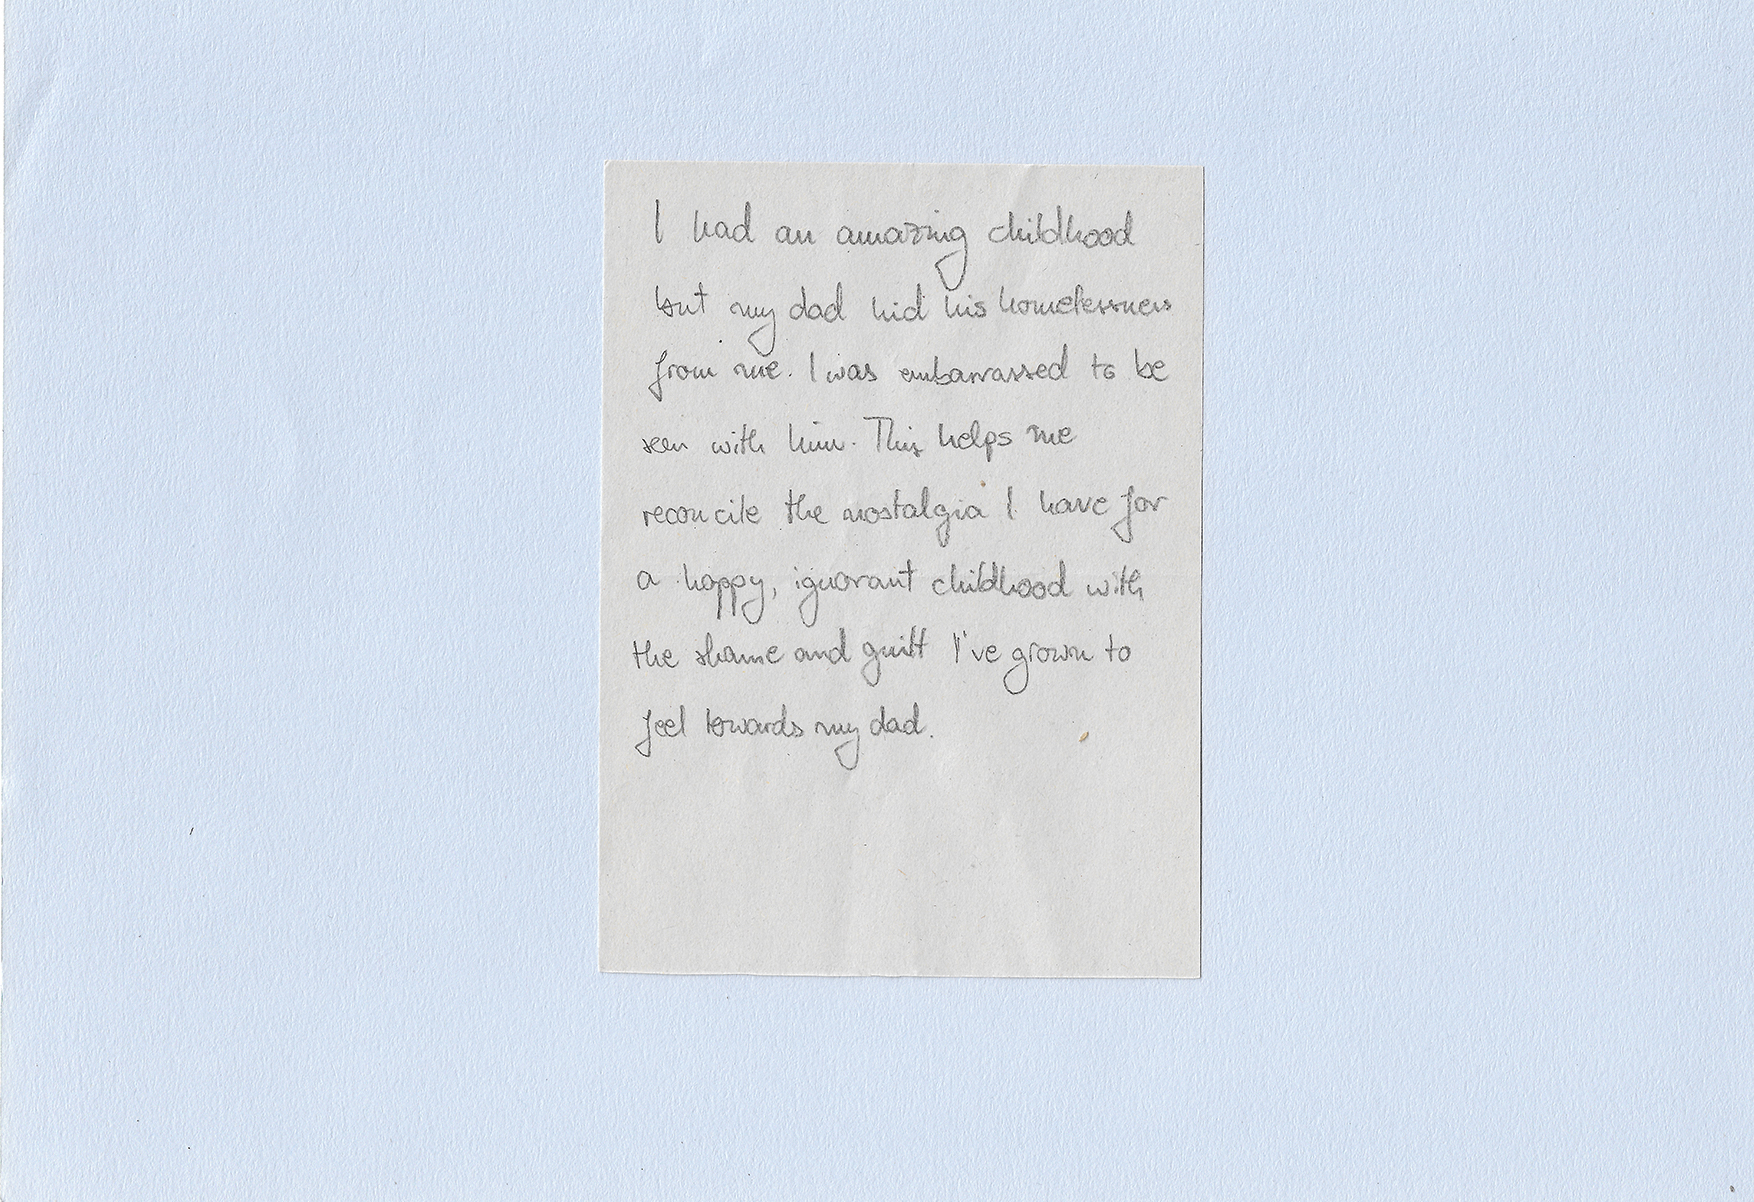 I had an amazing childhood
but my dad hid his homelessness
from me. I was embarrassed to be
seen with him. This helps me
reconcile the nostalgia I have for
a happy, ignorant childhood with
the shame and guilt I've grown to
feel towards my dad.